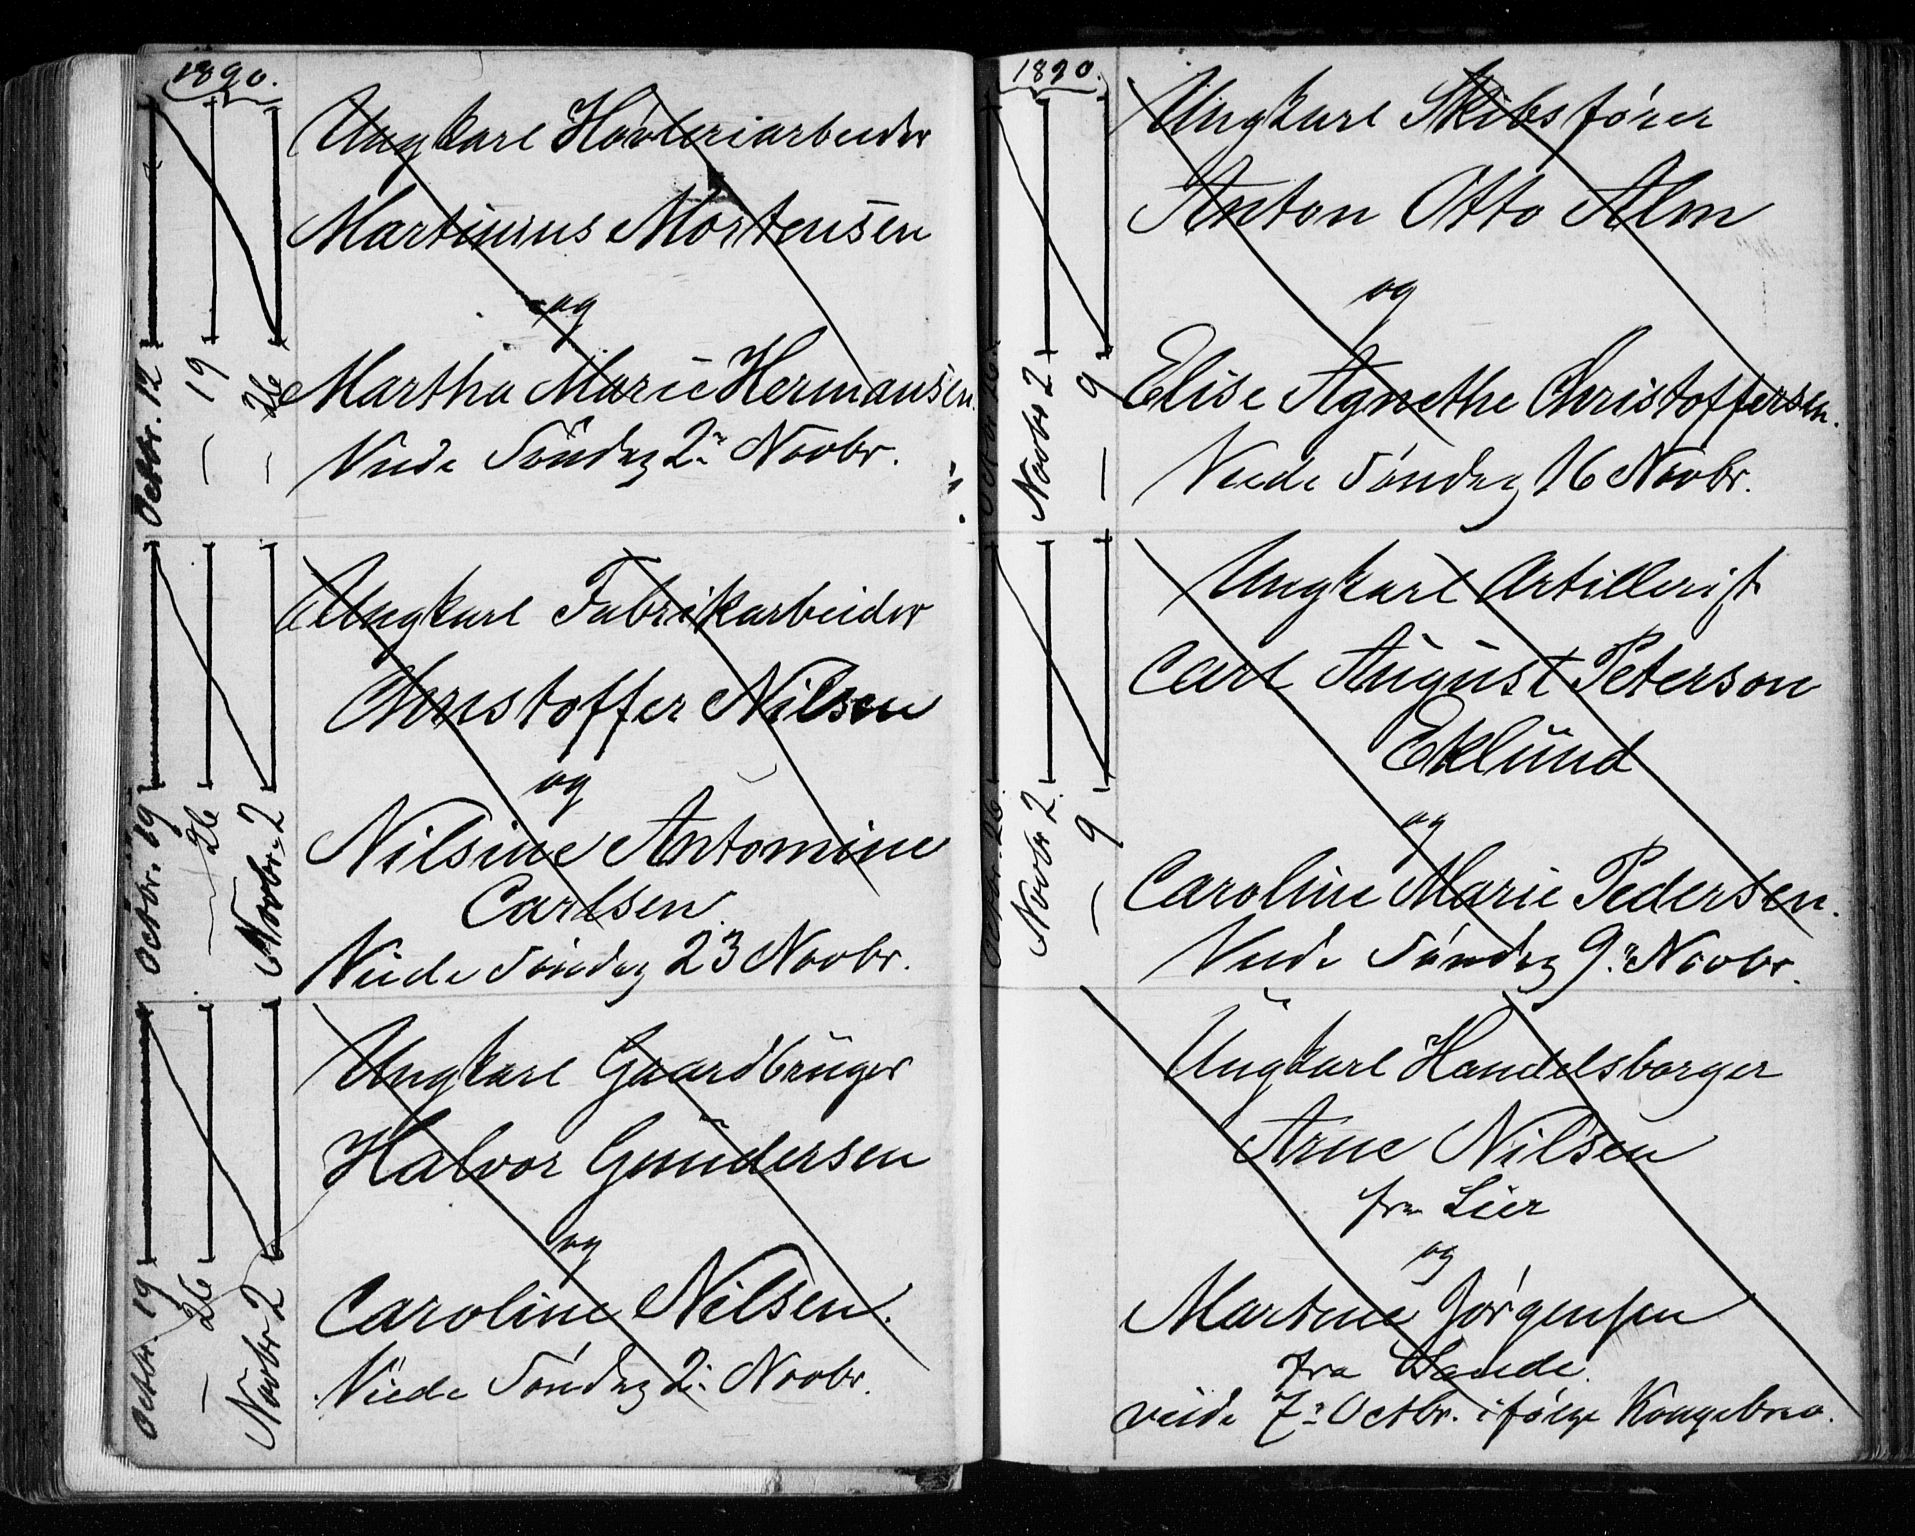 1890.
Ungkarl Høvleriarbeider
Martinius Mortensen
og
Martha Marie Hermansen.
Viede Søndag 2n Novbr.
Octbr. 12
— 19
— 26
Ungkarl Fabrikarbeider
Christoffer Nilsen
og
Nilsine Antomine
Carlsen.
Viede Søndag 23 Novbr.
Octbr. 19
— 26
Novbr. 2
Ungkarl Gaardbruger
Halvor Gundersen
og
Caroline Nilsen.
Viede Søndag 2n Novbr.
Octbr. 19
— 26
Novbr 2
1890.
Ungkarl Skibsfører
Anton Otto Alm
og
Elise Agnethe Christoffersen.
Viede Søndag 16 Novbr.
Novbr 2.
— 9
Ungkarl Artillerist
Carl August Peterson
Eklund
og
Caroline Marie Pedersen.
Viede Søndag 9n Novbr.
Octbr. 26.
Novbr 2.
— 9
Ungkarl Handelsborger
Arne Nilsen
fra Lier
og
Martine Jørgensen
fra Sande.
viede 7n Octbr. ifølge Kongebrev.